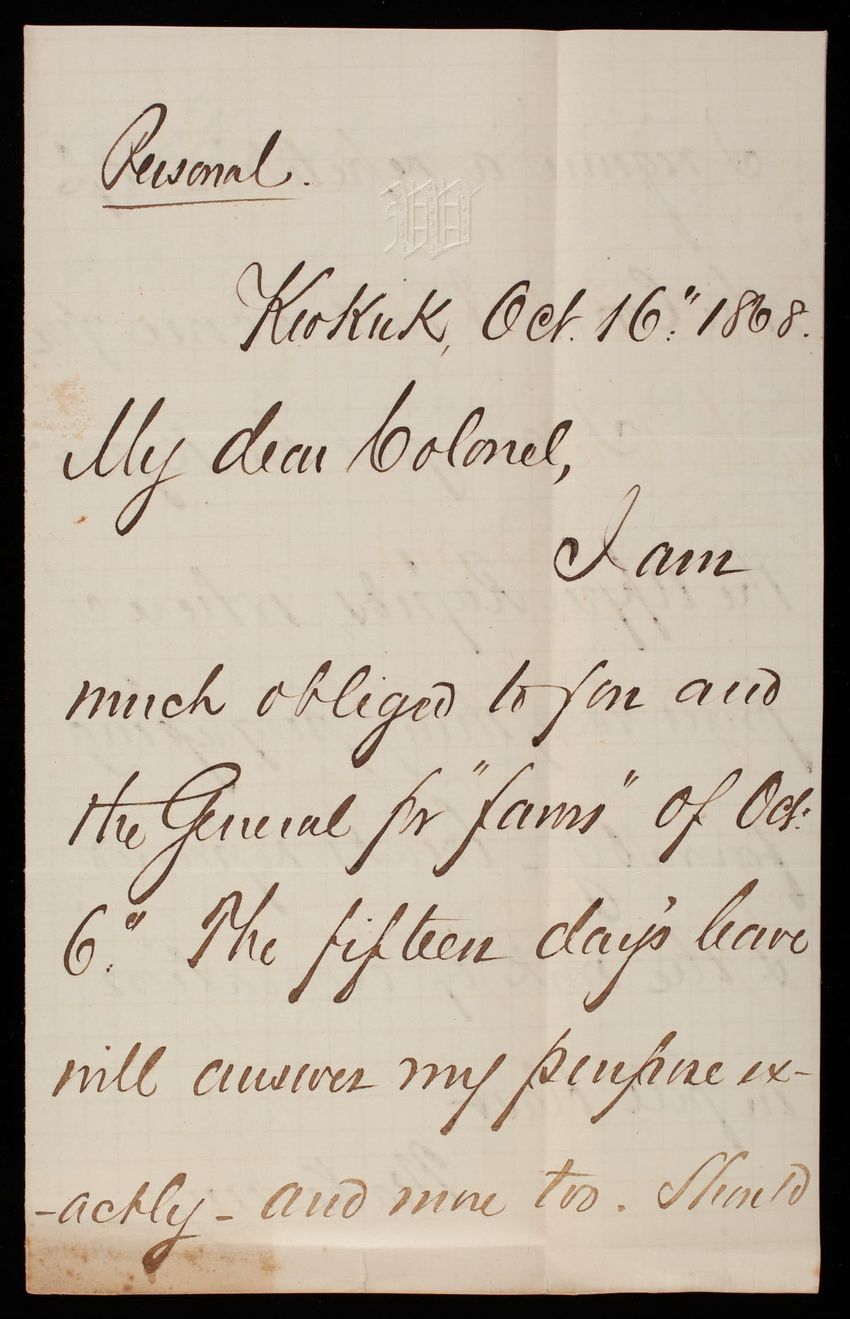 Personal.
W
Keokuk, Oct. 16." 1868.
My dear Colonel,
I am
much obliged to you and
the General for "favors" of Oct.
6." The fifteen day's leave
will answer my purpose ex-
-actly - and more too. Should